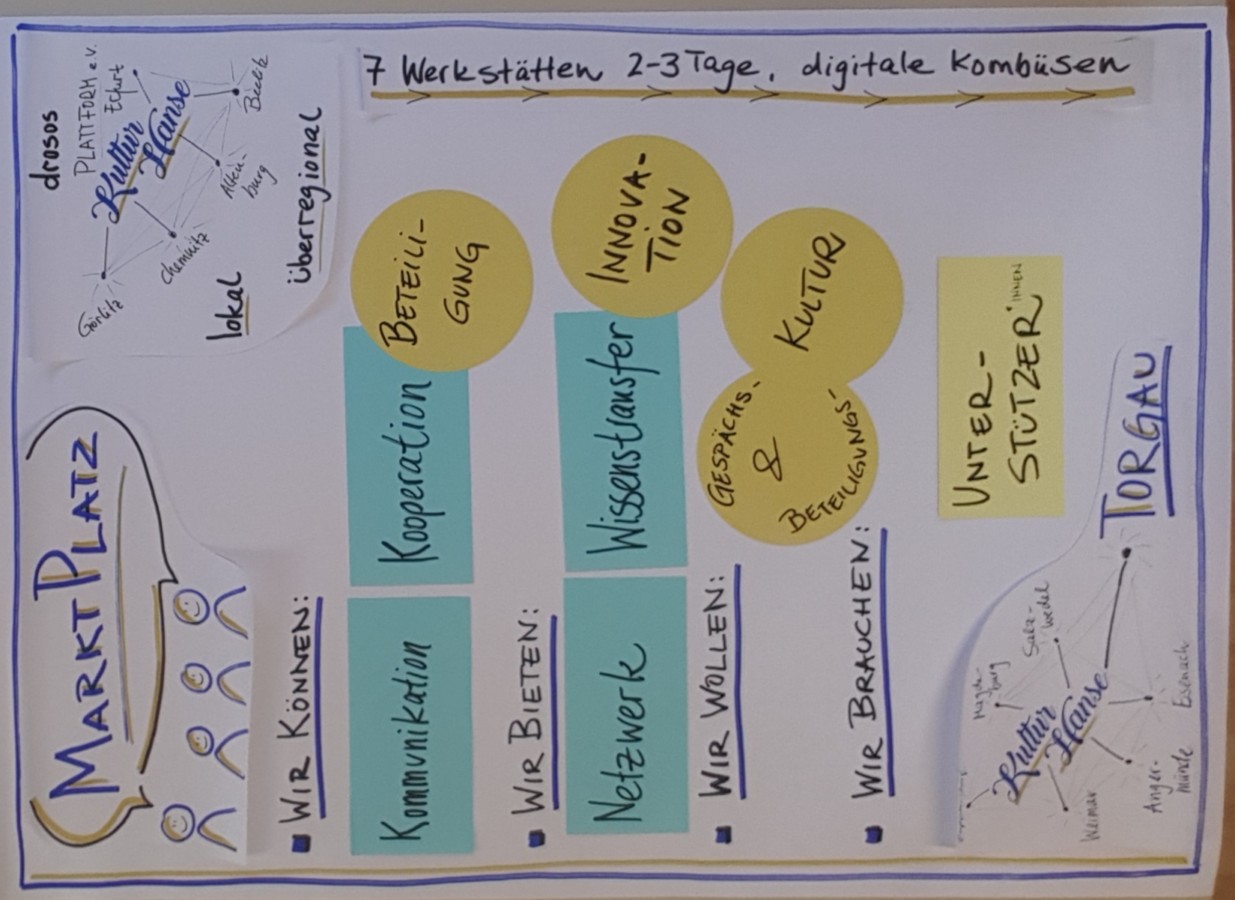 MARKTPLATZ
drosos
PLATTFORM e.V.
Kultur
Hanse
Erfurt
Görlitz
Chemnitz
Alten-
burg
lokal
überregional
7 Werkstätten 2-3 Tage, digitale Kombüsen
WIR KÖNNEN:
Kommunikation
Kooperation
BETEILI-
GUNG
WIR BIETEN:
Netzwerk
Wissenstransfer
INNOVA-
TION
WIR WOLLEN:
GESPÄCHS-
&
BETEILIGUNGS-
KULTUR
WIR BRAUCHEN:
UNTER-
STÜTZER*INNEN
Magde-
burg
Salz-
wedel
Kultur
Hanse
Weimar
Anger-
münde
Eisenach
TORGAU